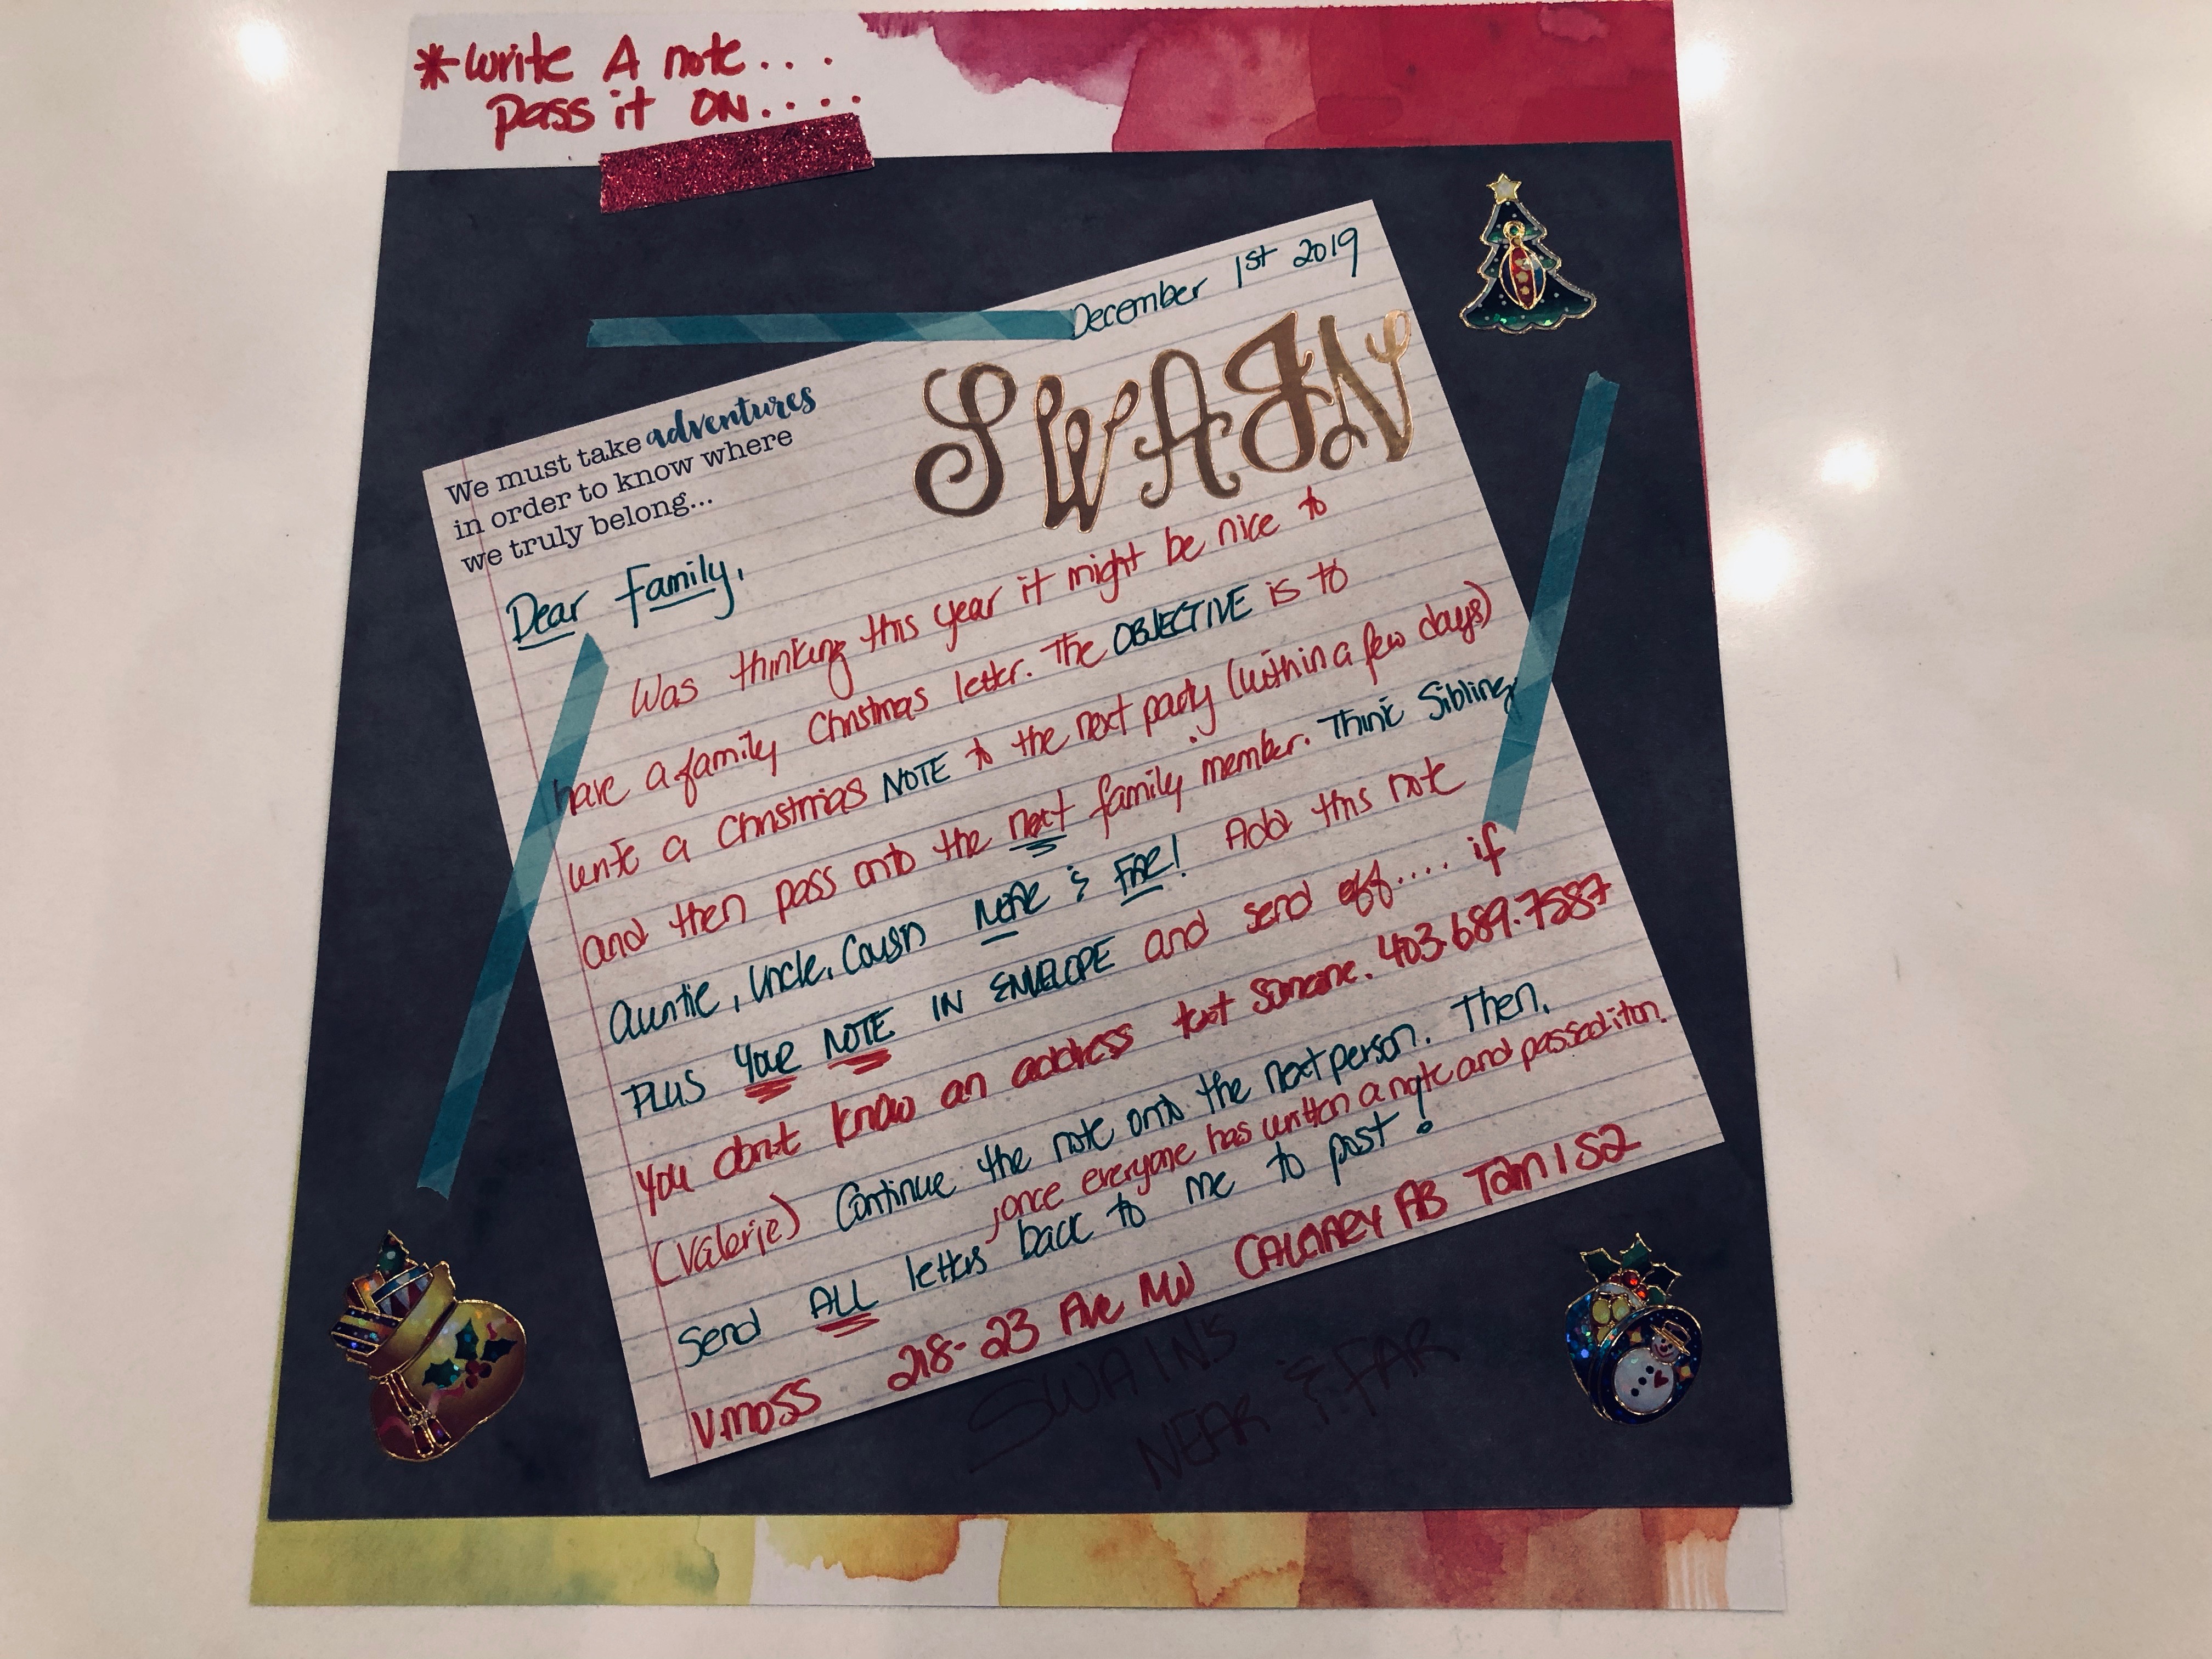 *Write A note...
Pass it ON....
December 1st 2019
SWAIN
We must take adventures
in order to know where
we truly belong...
Dear Family,
Was thinking this year it might be nice to
have a family Christmas letter. The OBJECTIVE is to
write a Christmas NOTE to the next party (within a few days)
and then pass onto the next family member. Think Sibling,
Auntie, Uncle, Cousin NEAR & FAR! Add this note
PLUS YOUR NOTE IN ENVELOPE and send off.... if
you don't know an address text someone. 403.689.7587
(Valerie) Continue the note onto the next person. Then,
once everyone has written a note and passed it on.
Send ALL letters back to me to post!
V.MOSS 218-23 Ave NW CALGARY AB T2M 1S2
SWAINS
NEAR & FAR